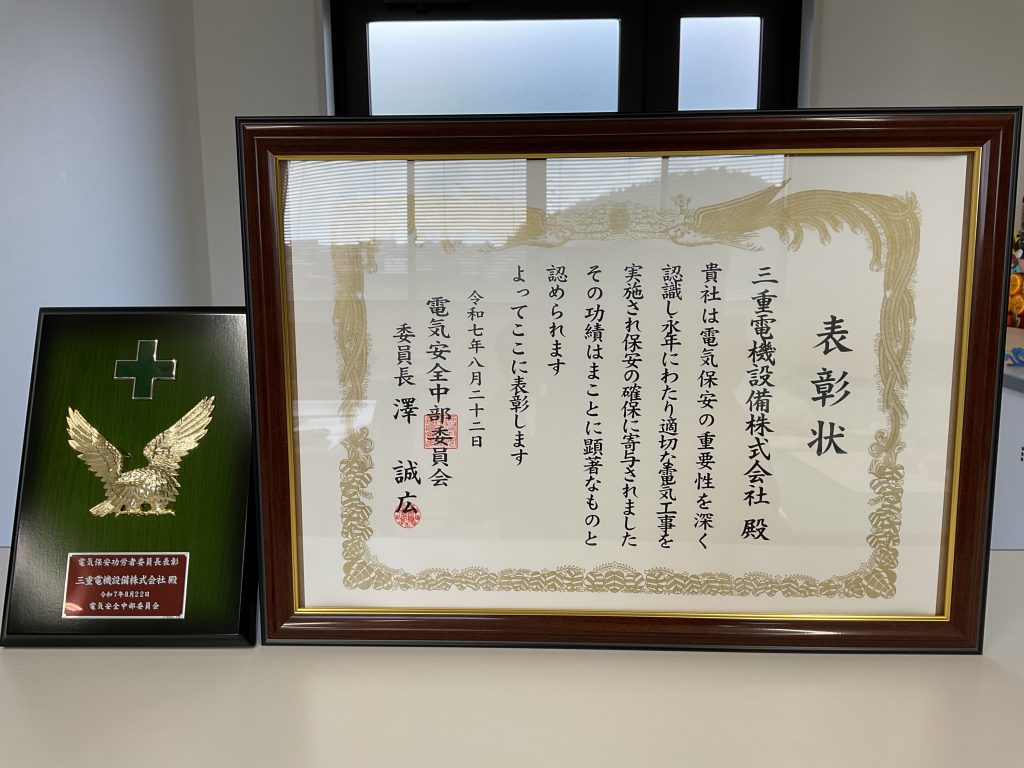 表彰状
三重電機設備株式会社 殿
貴社は電気保安の重要性を深く
認識し永年にわたり適切な電気工事を
実施され保安の確保に寄与されました
その功績はまことに顕著なものと
認められます
よってここに表彰します
令和七年八月二十二日
電気安全中部委員会
委員長 澤 誠広
電気保安功労者委員長表彰
三重電機設備株式会社 殿
令和7年8月22日
電気安全中部委員会